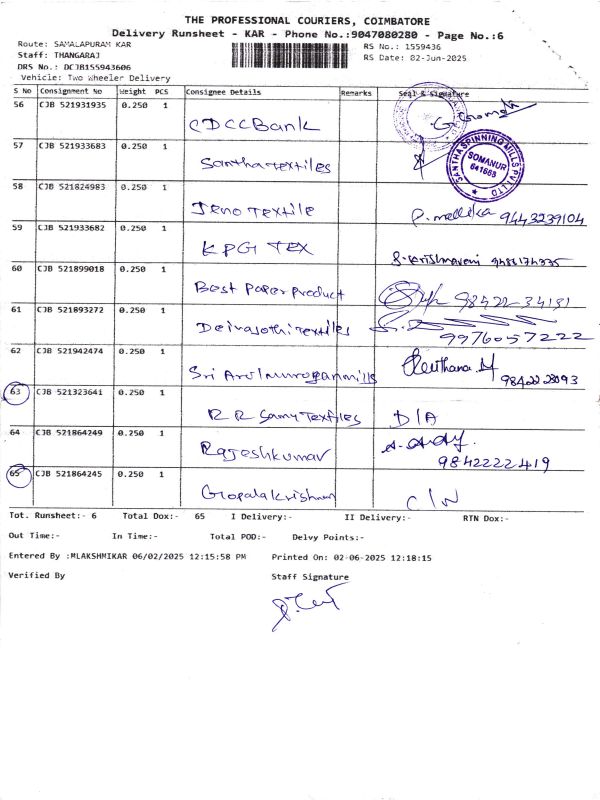 THE PROFESSIONAL COURIERS, COIMBATORE
Delivery Runsheet - KAR - Phone No.:9047080280 - Page No.:6
Route: SAMALAPURAM KAR RS No.: 1559436
Staff: THANGARAJ RS Date: 02-Jun-2025
DRS No.: DCJB155943606
Vehicle: Two Wheeler Delivery
S No Consignment No Weight PCS Consignee Details Remarks Seal & Signature
56 CJB 521931935 0.250 1 CDCC Bank
57 CJB 521933683 0.250 1 Santha textiles
SANTHA SPINNING MILLS PVT LTD SOMANUR 641668
58 CJB 521824983 0.250 1 Jeno Textile P. mellika 9443239104
59 CJB 521933682 0.250 1 KPG TEX
60 CJB 521899018 0.250 1 Best paper product 98422-34131
61 CJB 521893272 0.250 1 Deivajothi Textiles 9976057222
62 CJB 521942474 0.250 1 Sri Arulmurogan mills
63 CJB 521323641 0.250 1 R R Samy Textiles D/A
64 CJB 521864249 0.250 1 Rajeshkumar 9842222419
65 CJB 521864245 0.250 1 Gopalakrishnan C/N
Tot. Runsheet:- 6 Total Dox:- 65 I Delivery:- II Delivery:- RTN Dox:-
Out Time:- In Time:- Total POD:- Delvy Points:-
Entered By :MLAKSHMIKAR 06/02/2025 12:15:58 PM Printed On: 02-06-2025 12:18:15
Verified By Staff Signature